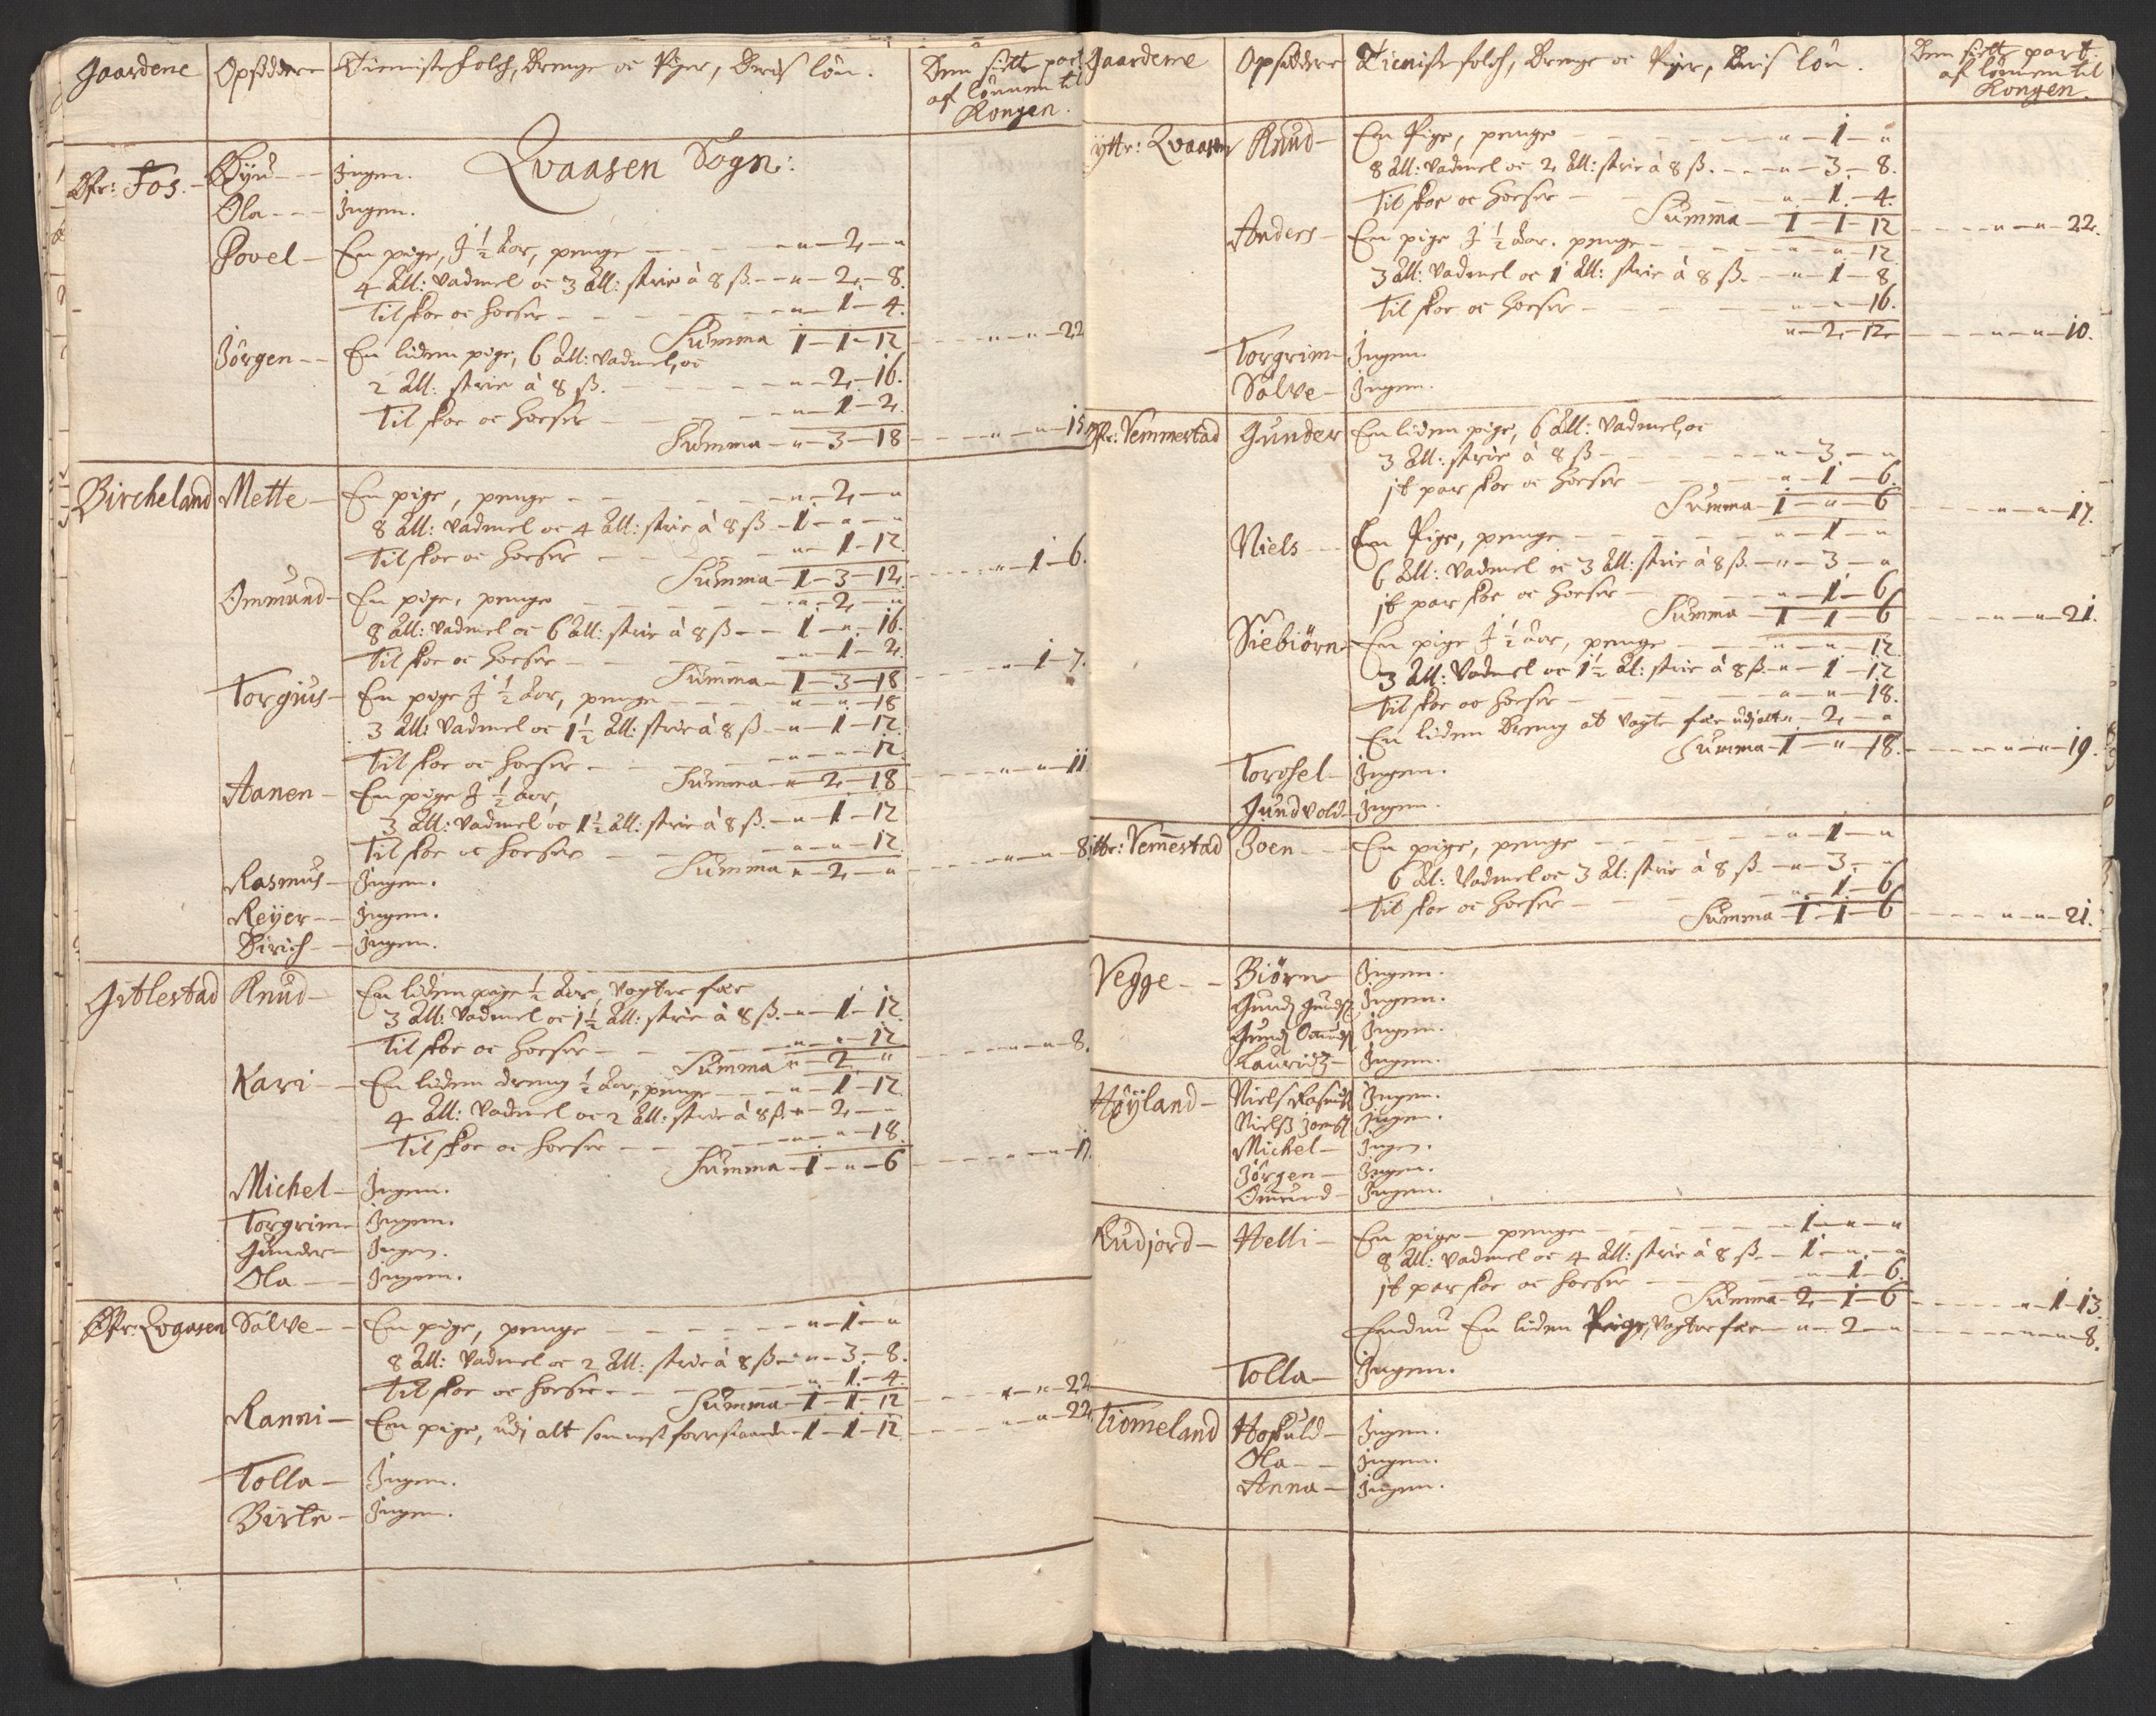 Gaardene Opsiddere Tieniste folch, Drenge oc Piger, Deris lön. Den siette part af lönnen til Kongen.
Qvaasen Sogn:
Öfr: Fos. Öyud Ingen.
Ola Ingen.
Povel En pige, J ½ Aar, penge " 2 "
4 All: vadmel oc 3 All: strie à 8 ß. " 2 8.
Til skoe oc hoeser " 1 4.
Summa 1 1 12 " " 22
Jörgen En liden pige, 6 All: vadmel, oc
2 All: strie à 8 ß. " 2 16.
Til skoe oc hoeser " 1 2.
Summa " 3 18 " " 15
Bircheland Mette En pige, penge " 2 "
8 All: vadmel oc 4 All: strie à 8 ß 1 " "
Til skoe oc hoeser " 1 12.
Summa 1 3 12 " 1 6.
Ommund En pige, penge " 2 "
8 All: vadmel oc 6 All: strie à 8 ß 1 " 16.
Til skoe oc hoeser " 1 2.
Summa 1 3 18 " 1 7.
Torgius En pige J ½ Aar, penge " " 18
3 All: vadmel oc 1½ All: strie à 8 ß " 1 12.
Til skoe oc hoeser " " 12
Summa " 2 18 " " 11
Aanen En pige J ½ Aar,
3 All: vadmel oc 1½ All: strie à 8 ß. " 1 12
Til skoe oc hoeser " " 12.
Summa " 2 " " " 8.
Rasmus Ingen.
Reÿer Ingen.
Dirich Ingen.
Gitlestad Knud En liden pige ½ Aar, vogter fæe
3 All: vadmel oc 1½ All: strie à 8 ß. " 1 12.
Til skoe oc hoeser " " 12
Summa " 2 " " " 8.
Kari En liden dreng ½ Aar, penge " 1 12.
4 All: vadmel oc 2 All: strie à 8 ß " 2 "
Til skoe oc hoeser " " 18.
Summa 1 " 6 " " 17
Michel Ingen.
Torgrim Ingen.
Gunder Ingen.
Ola Ingen.
Öfr: Qvaasen Sålve En pige, penge " 1 "
8 All: vadmel oc 2 All: strie à 8 ß " 3 8.
Til skoe oc hoeser " 1 4.
Summa 1 1 12 " " 22
Ranni En pige, udj alt som nest forrestaaende 1 1 12 " " 22.
Tolla Ingen.
Birte Ingen.
Gaardene Opsiddere Tieniste folch, Drenge oc Piger, Deris lön. Den siette part af lönnen til Kongen.
ÿttr: Qvaasen Knud En Pige, penge " 1 "
8 All: vadmel oc 2 All: strie à 8 ß. " 3 8.
Til skoe oc hoeser " 1 4.
Summa 1 1 12 " " 22.
Anders En pige J ½ Aar. penge " " 12
3 All: vadmel oc 1 All: strie à 8 ß. " 1 8
Til skoe oc hoeser " " 16.
" 2 12 " " 10.
Torgrim Ingen.
Sålve Ingen.
Öfr: Vemmestad Gunder En liden pige, 6 All: vadmel, oc
3 All: strie à 8 ß " 3 "
jt par skoe oc hoeser " 1 6.
Summa 1 " 6 " " 17.
Niels En Pige, penge " 1 "
6 All: vadmel oc 3 All: strie à 8 ß " 3 "
jt par skoe oc hoeser " 1 6
Summa 1 1 6 " " 21.
Siebiörn En pige J ½ Aar, penge " " 12
3 All: vadmel oc 1½ Al: strie à 8 ß " 1 12
Til skoe oc hoeser " " 18.
En liden Dreng at vogte fæe udj alt " 2 "
Summa 1 " 18. " " 19.
Torchel Ingen.
Gundvold Ingen.
ÿttr: Vem̄estad Joen En pige, penge " 1 "
6 Al: vadmel oc 3 Al: strie à 8 ß " 3 "
Til skoe oc hoeser " 1 6
Summa 1 1 6 " " 21.
Vegge Biörn Ingen.
Gund Gunds Ingen.
Gund Ingen.
Lauridz Ingen.
Höÿland Niels Rasmus Ingen.
Niels Joens Ingen.
Michel Ingen.
Jörgen Ingen.
Om̄und Ingen.
Rudjord Helli En pige penge 1 " "
8 All: vadmel oc 4 All: strie à 8 ß 1 " "
jt par skoe oc hoeser " 1 6.
Summa 2 1 6 " 1 13.
Endnu En liden Pige, vogter fæe " 2 " " " 8.
Tolla Ingen.
Tiomeland Hoskuld Ingen.
Ola Ingen.
Anna Ingen.